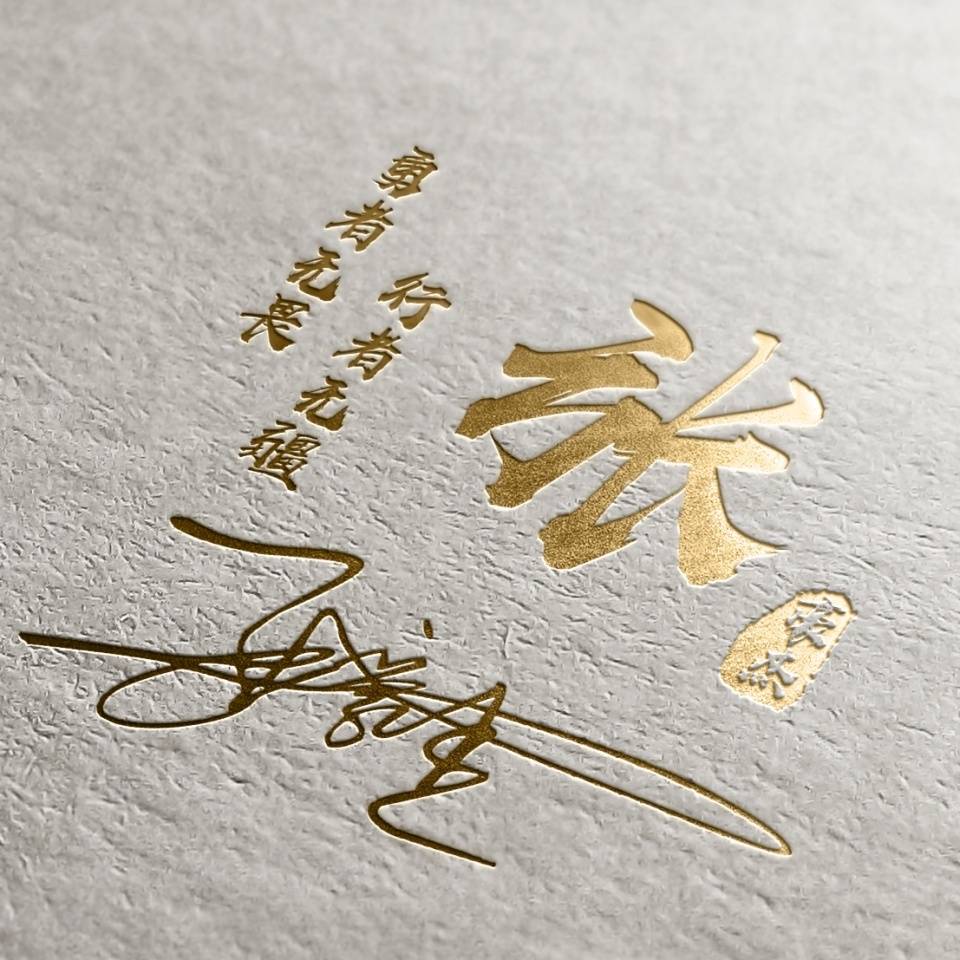 勇者无畏
行者无疆
张
家杰